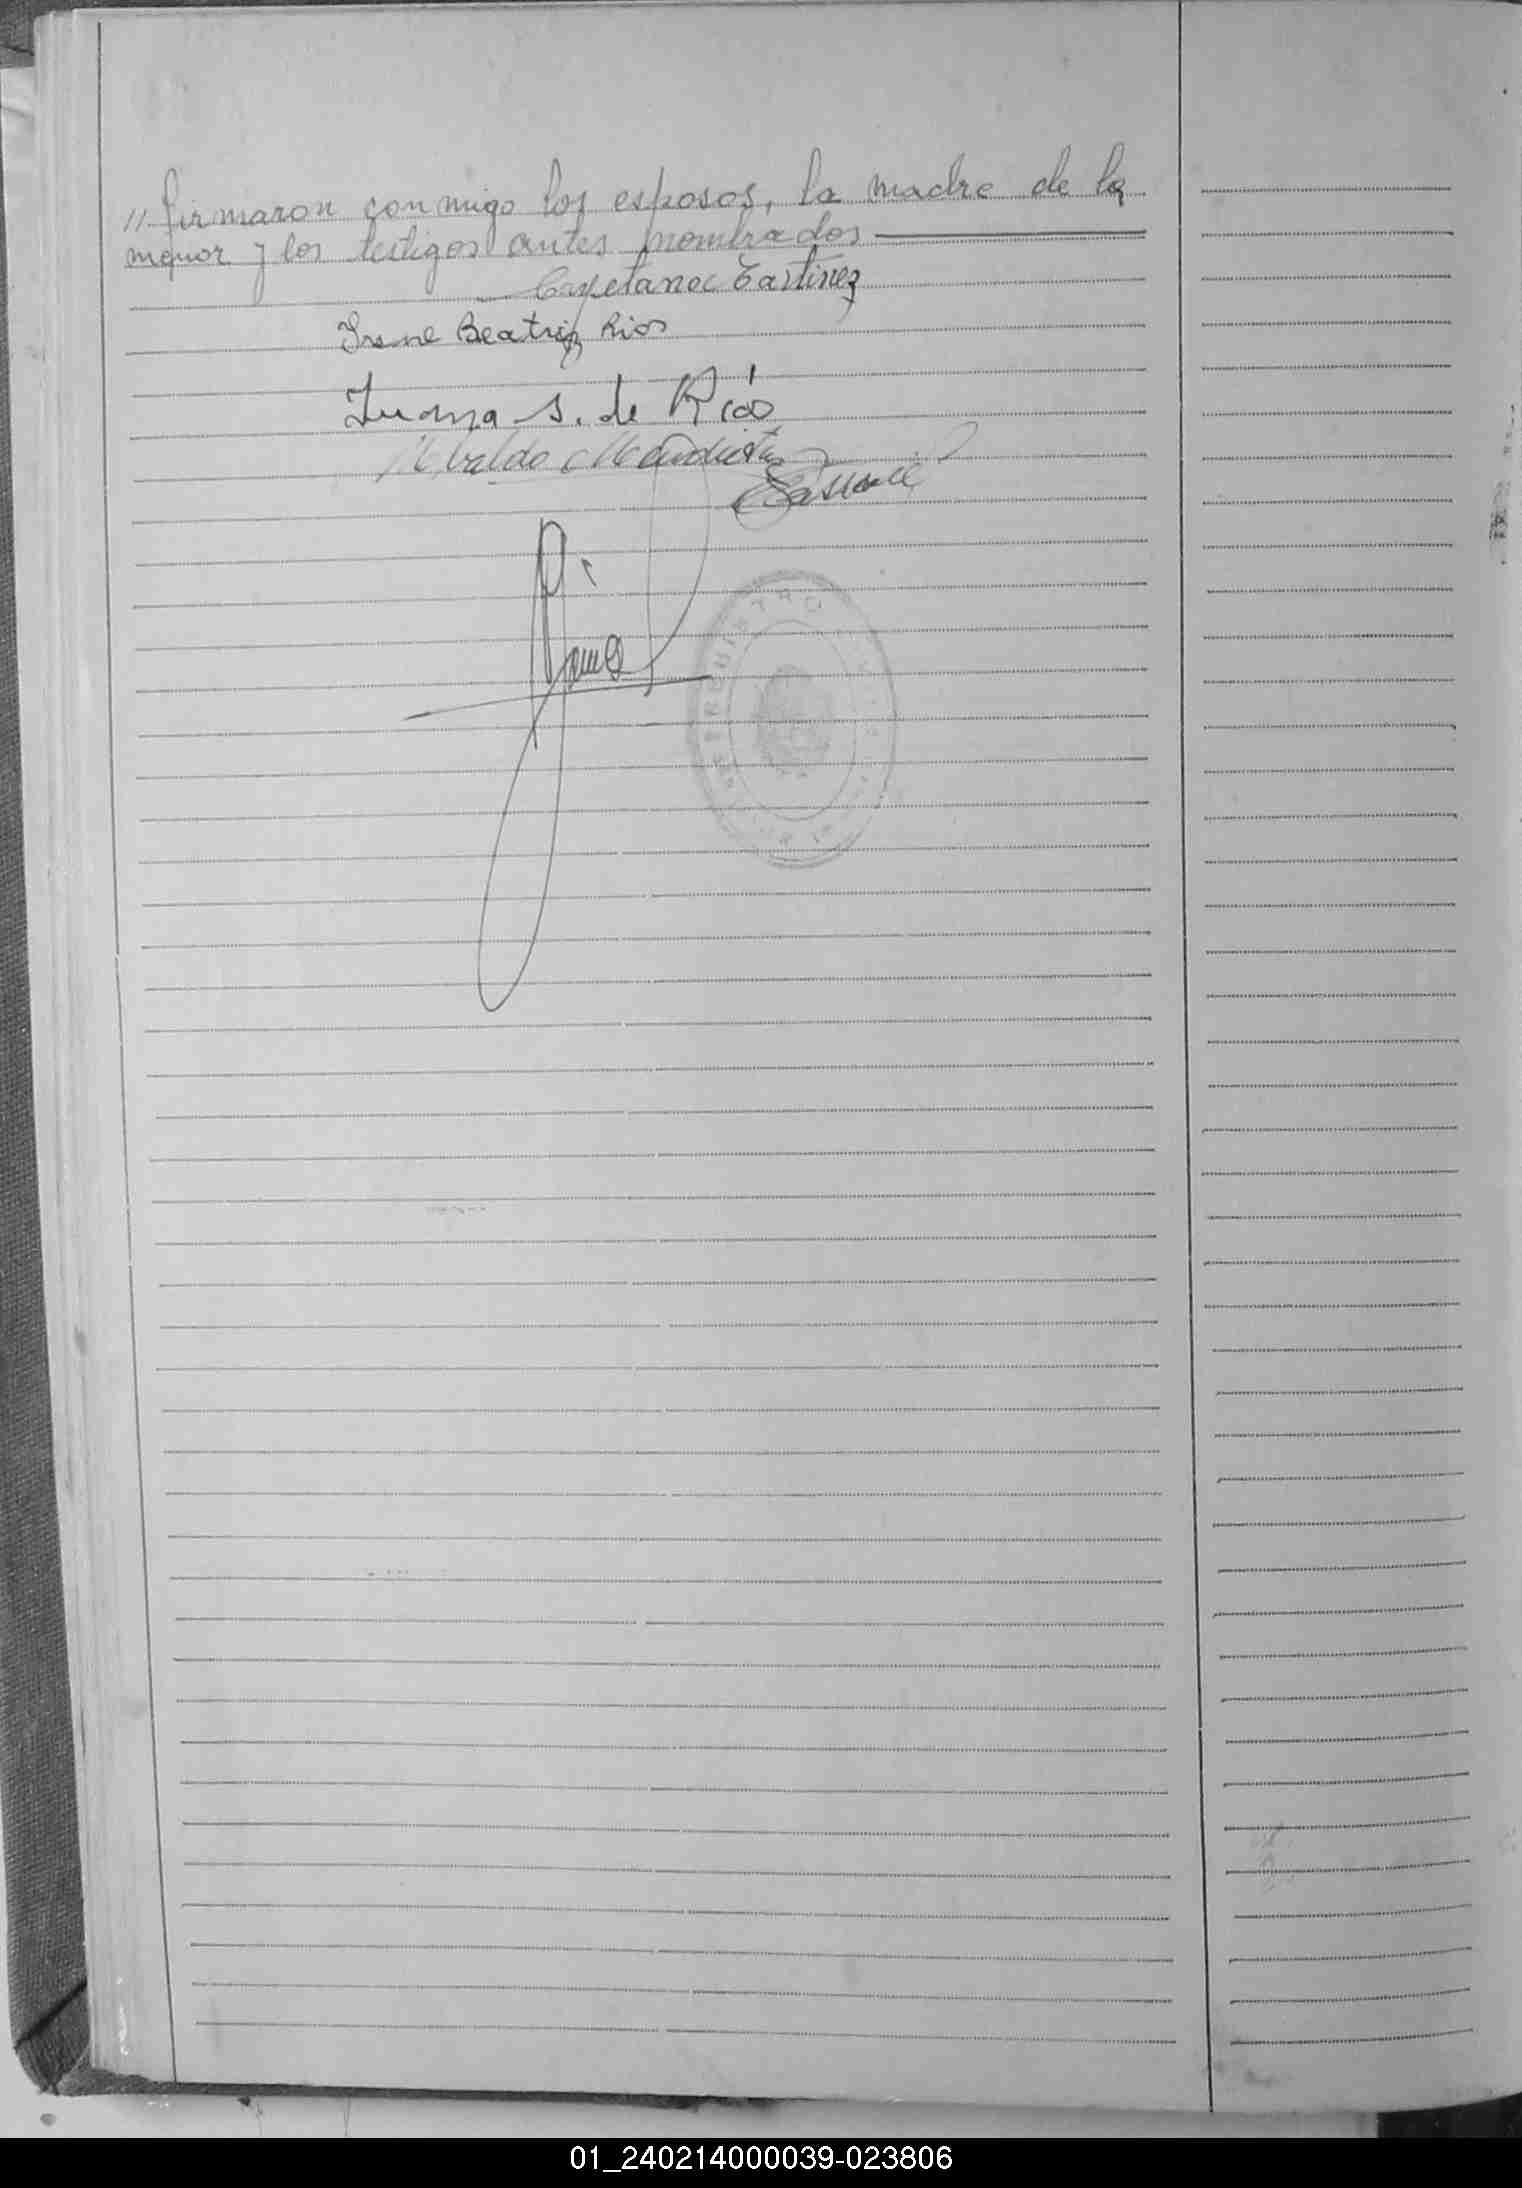 // firmaron conmigo los esposos, la madre de la
menor y los testigos antes nombrados
Cayetano Tartinez
Irene Beatriz Rios
Juana S. de Ríos
Ubaldo
REGISTRO
01_240214000039-023806